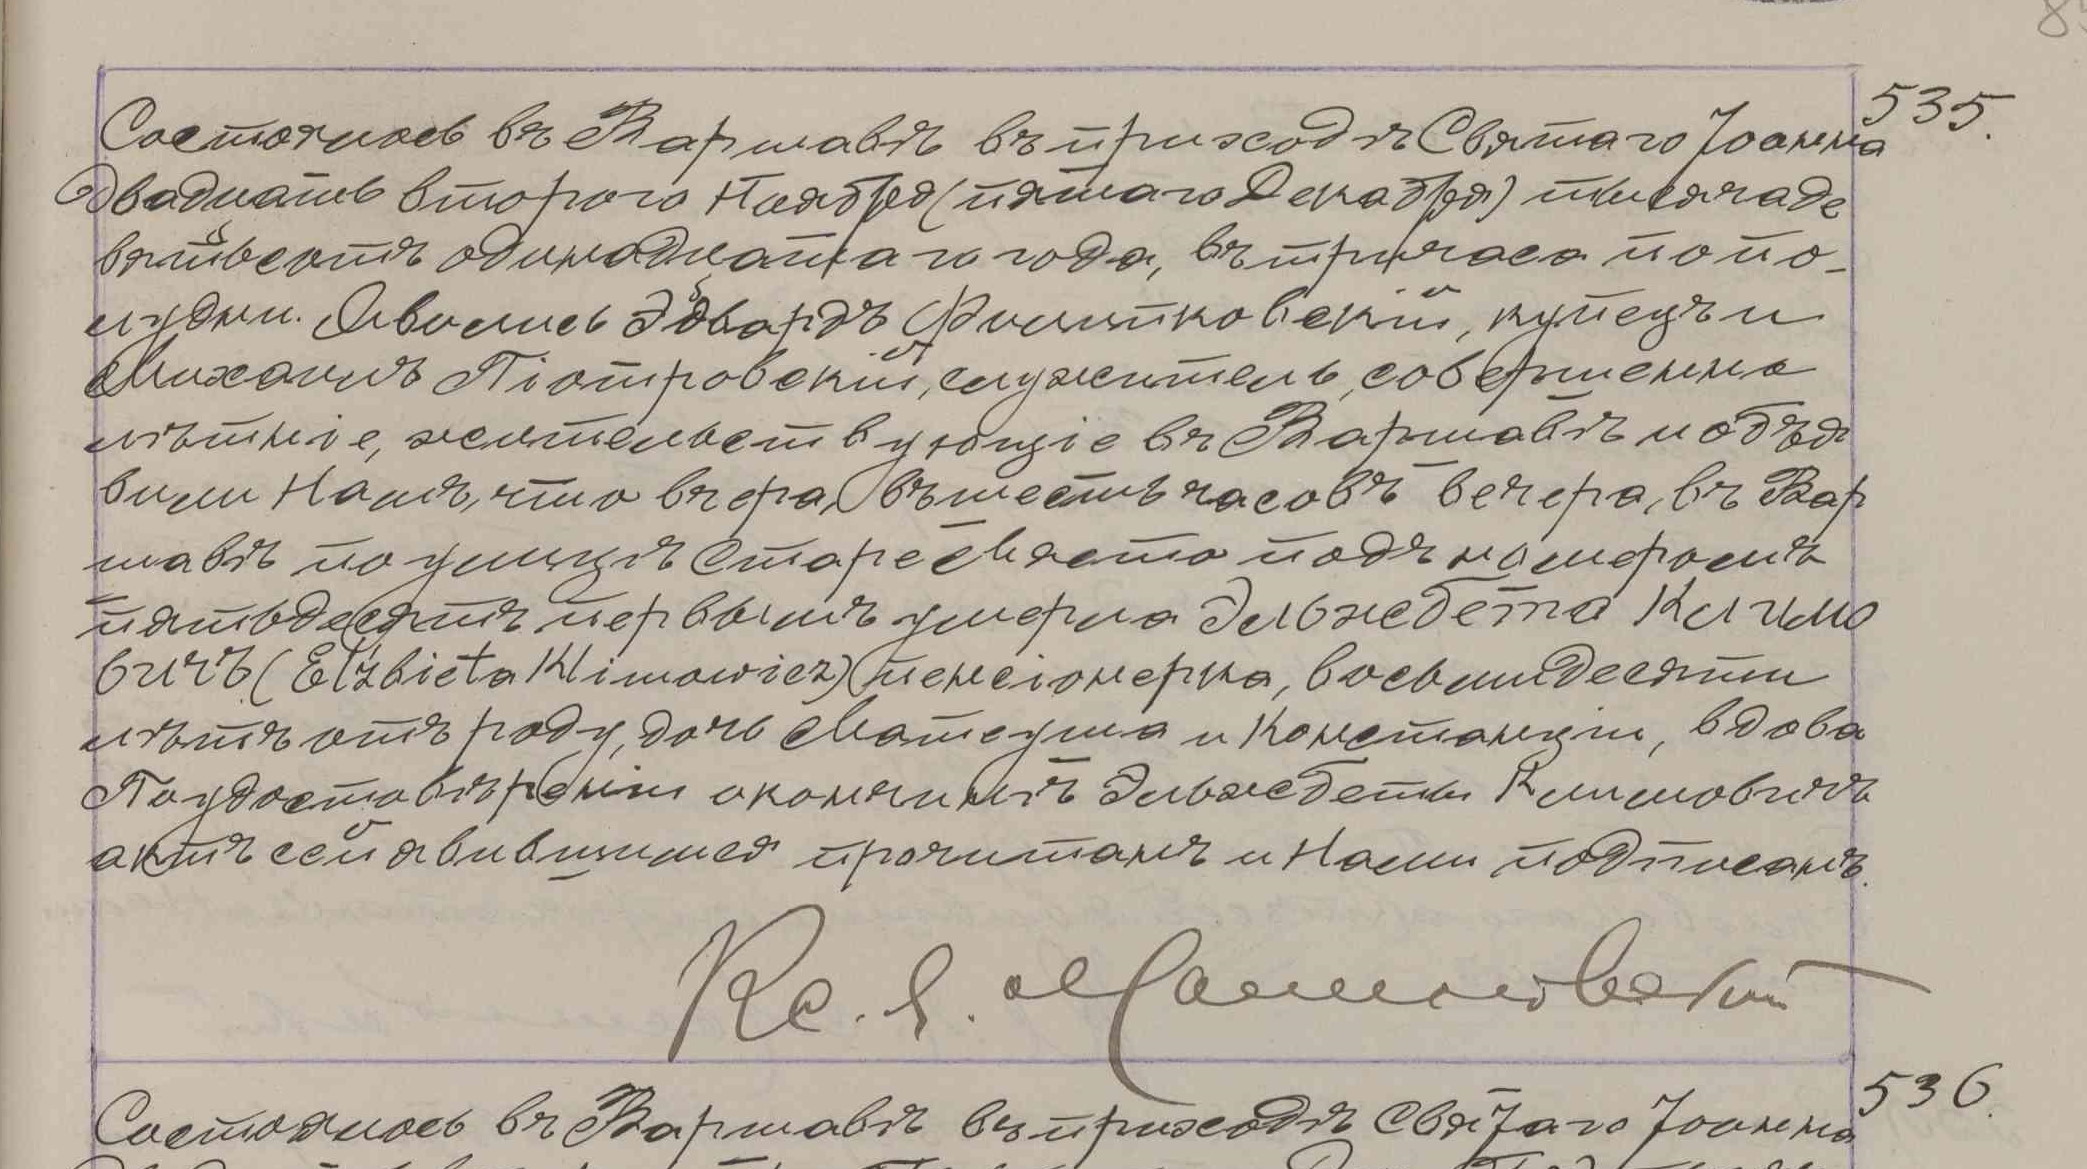 535.
Состоялось въ Варшавѣ въ приходѣ Святаго Іоанна
двадцать втораго Ноября (пятаго Декабря) тысяча де
вятьсотъ одинадцатаго года, въ три часа по по-
лудни. Явились Эдвардъ Филипковскій, купецъ и
Михаилъ Піотровскій, служитель, совершенно
лѣтніе, жительствующіе въ Варшавѣ и объя
вили Намъ, что вчера, въ шесть часовъ вечера, въ Вар
шавѣ по улицѣ Старе Място подъ номеромъ
пятьдесятъ первымъ умерла Эльжбета Климо
вичъ (Elżbieta Klimowicz) пенсіонерка, восьмидесяти
лѣтъ отъ роду, дочь Матеуша и Констанціи, вдова
По удостовѣреніи о кончинѣ Эльжбеты Климовичъ
актъ сей явившимся прочитанъ и Нами подписанъ.
Кс. Я.
536.
Состоялось въ Варшавѣ въ приходѣ Святаго Іоанна